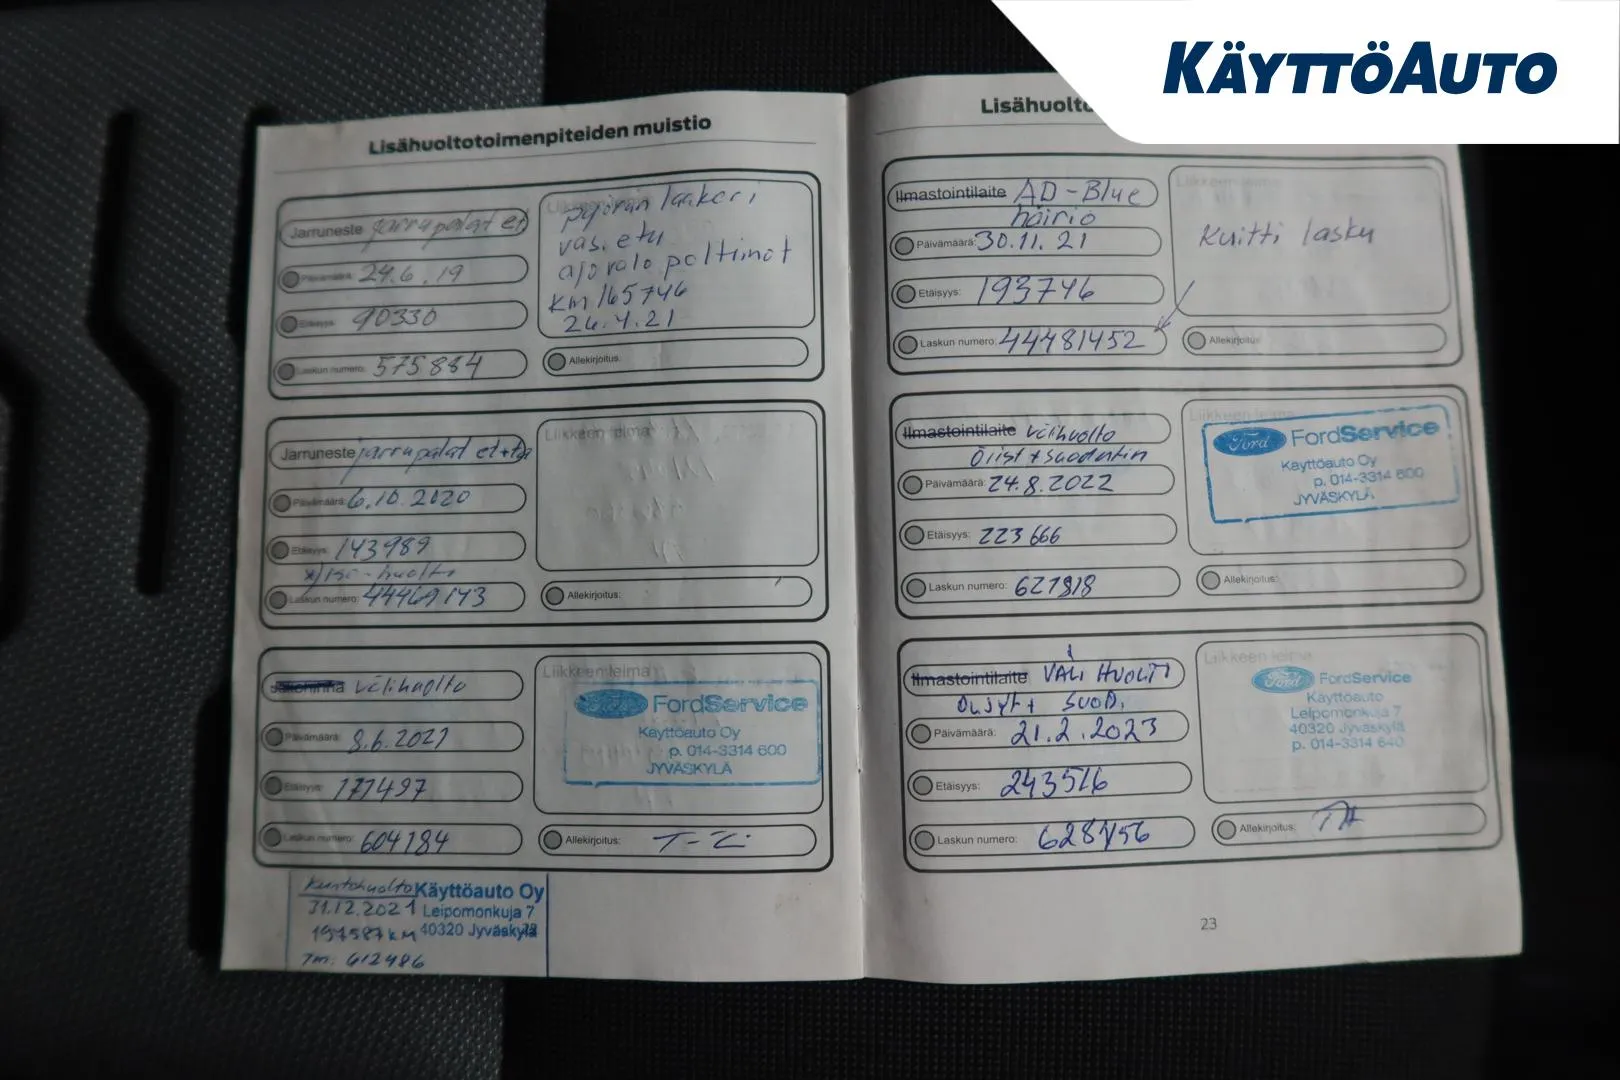 KÄYTTÖAUTO
Lisähuoltotoimenpiteiden muistio
Jarruneste jarrupalat et
Päivämäärä: 24.6.19
Etäisyys: 90330
Laskun numero: 575884
Liikkeen leima
pyörän laakeri
vas. etu
ajovalo polttimot
km 165746
26.4.21
Allekirjoitus:
Jarruneste jarrupalat et+ta
Päivämäärä: 6.10.2020
Etäisyys: 143989
Laskun numero: 44469143
Liikkeen leima
Allekirjoitus:
Jakohihna välihuolto
Päivämäärä: 8.6.2021
Etäisyys: 177497
Laskun numero: 604184
Liikkeen leima
Ford FordService
Käyttöauto Oy
p. 014-3314 600
JYVÄSKYLÄ
Allekirjoitus:
Kuntohuolto
31.12.2021
197587 KM
Tm. 612486
Käyttöauto Oy
Leipomonkuja 7
40320 Jyväskylä
Lisähuolto
Ilmastointilaite AD-Blue
häiriö
Päivämäärä: 30.11.21
Etäisyys: 193746
Laskun numero: 44481452
Liikkeen leima
Kuitti lasku
Allekirjoitus:
Ilmastointilaite välihuolto
Öljyt + suodatin
Päivämäärä: 24.8.2022
Etäisyys: 223666
Laskun numero: 621818
Liikkeen leima
Ford FordService
Käyttöauto Oy
p. 014-3314 600
JYVÄSKYLÄ
Allekirjoitus:
Ilmastointilaite VÄLI HUOLTO
ÖLJYT + SUOD.
Päivämäärä: 21.2.2023
Etäisyys: 243516
Laskun numero: 628156
Liikkeen leima
Ford FordService
Käyttöauto
Leipomonkuja 7
40320 Jyväskylä
p. 014-3314 640
Allekirjoitus:
23